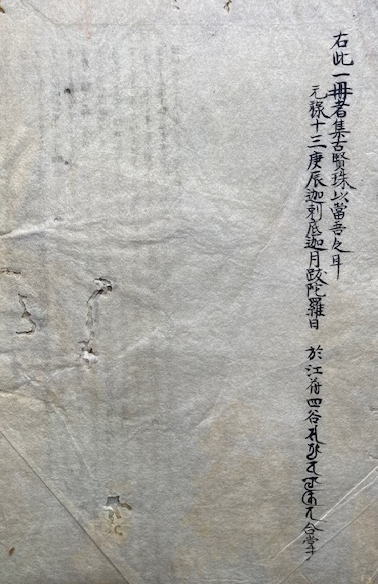 右此一冊者集古賢珠以當吾
元祿十三庚辰迦剌底迦月跋陀羅日 於江府四谷
合掌